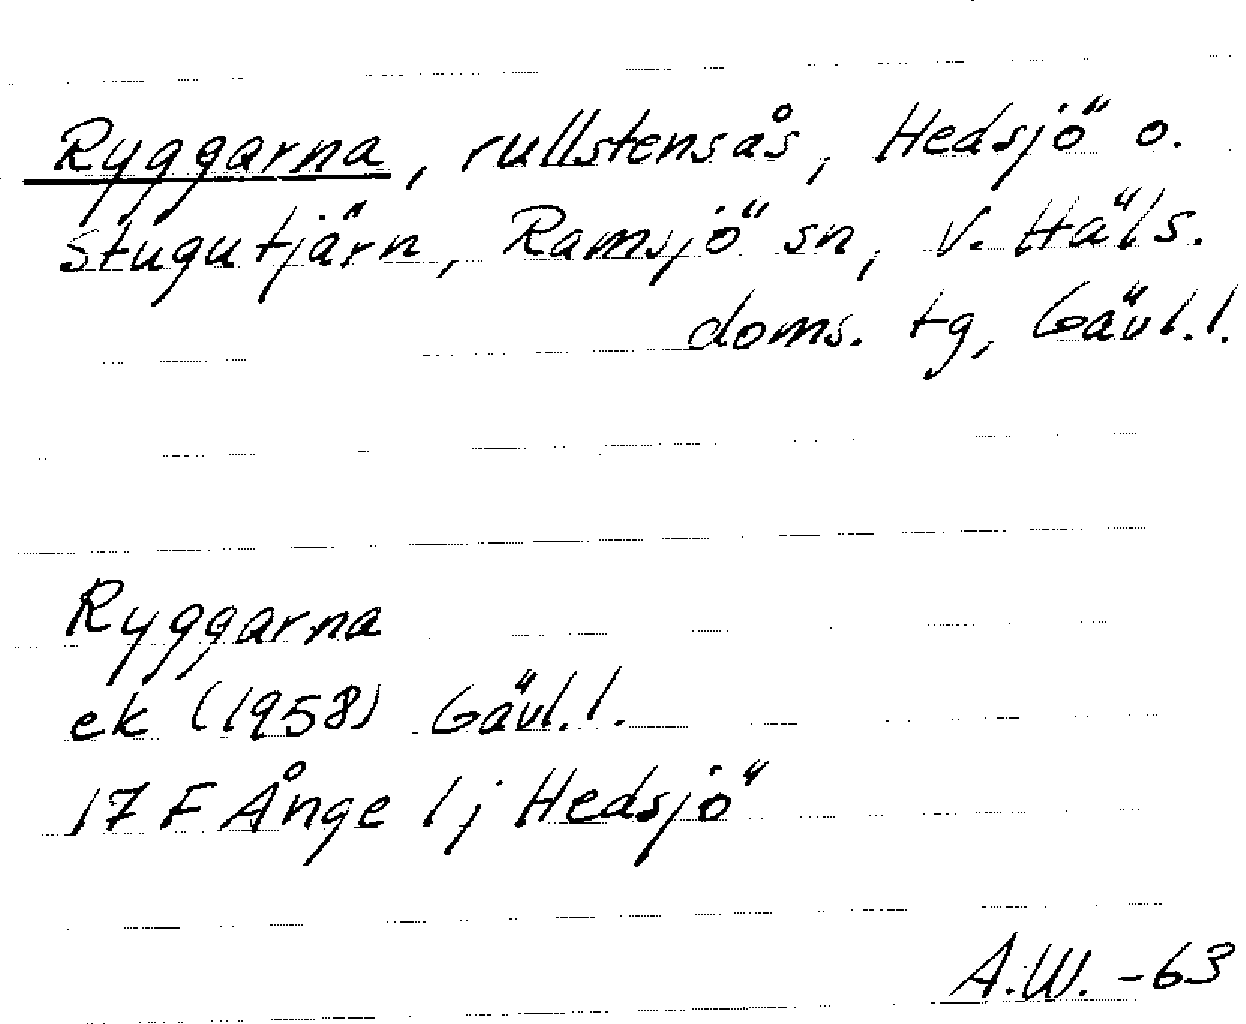 Ryggarna, rullstensås, Hedsjö o.
Stugutjärn, Ramsjö sn, V. Häls.
doms. tg, Gävl.l.
Ryggarna
ek (1958) Gävl.l.
17 F Ånge 1j Hedsjö
A.W. -63